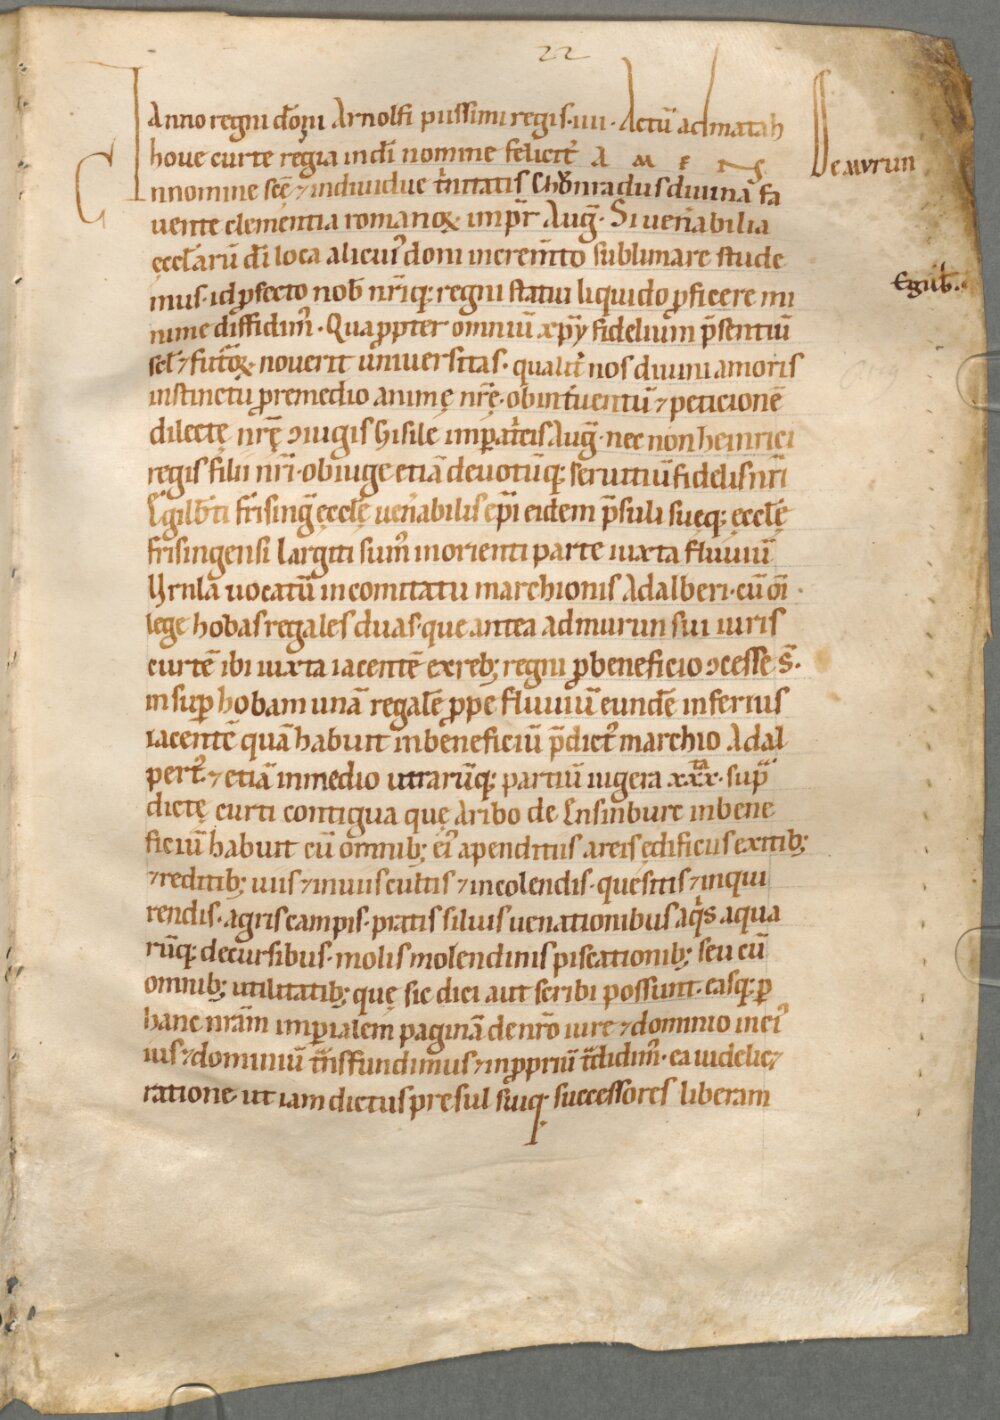 22
Anno regni dom̄ni Arnolfi piissimi regis·iiii· Actū ad matah
hove curte regia in dī nomine felicit̄ A M E N
De mvrun
Innomine scē ⁊ individue t̄nitatis Chǒnradus divina fa
vente clementia romanoꝝ imp̄r Aug̅· Si ven̄abilia
ęccl̄arū dī loca alicui᾽ doni increm̄to sublimare stude
Egilb̄·
mus· id ꝓfecto nob̄ nr̄iq; regni statui liquido ꝓficere mi
nime diffidim᾽· Quapropter omniū xp̄i fidelium p̄sentiū
scl̄ ⁊ fut̄oꝝ noverit universitas· qualit̄ nos divini amoris
instinctu ꝓ remedio animę nr̄ę· ob int̄ventū ⁊ peticionē
dilectę nr̄ę ꝯiugis Gisilę imperat̄cis Aug̅· nec non heinrici
regis filii nr̄i· ob iuge etiā devotūq; servitiū fidelis nr̄i
Egilb̄ti frising̅ ęccl̄ę ven̄abilis ep̄i eidem p̄suli suęq; ęccl̄ę
frisingensi largiti sum᾽ in orienti parte iuxta fluviū
Vrnla vocatū in comitatu marchionis Adalberi· cū om̄i
lege hobas regales duas· que antea ad murun sui iuris
curtē ibi iuxta iacentē ex reb; regni ꝓ beneficio ꝯcesse s̄·
insup̄ hobam unā regalē ꝓpe fluviū eundē inferius
iacentē quā habuit in beneficiū p̄dict᾽ marchio Adal
pert᾽· ⁊ etiā in medio utrarūq; partiū iugera xxx̄ta· sup̄
dictę curti contigua quę Aribo de Ensinburc in bene
ficiū habuit cū omnib; ei᾽ apenditiis areis ędificiis exitib;
⁊ reditib; viis ⁊ inviis cultis ⁊ incolendis· quesitis ⁊ inqui
rendis· agris campis· pratis silvis venationibus aq̇s aqua
rūq; decursibus· molis molendinis piscationib; seu cū
omnib; utilitatib; quę sic dici aut scribi possunt· easq; p̄
hanc nr̄am imperialem paginā de nr̄o iure ⁊ dominio in ei᾽
ius ⁊ dominiū t̄nsfundimus ⁊ in ꝓpriū t̄didim᾽· ea videlic⁊
ratione· ut iam dictus presul suiq; successores liberam